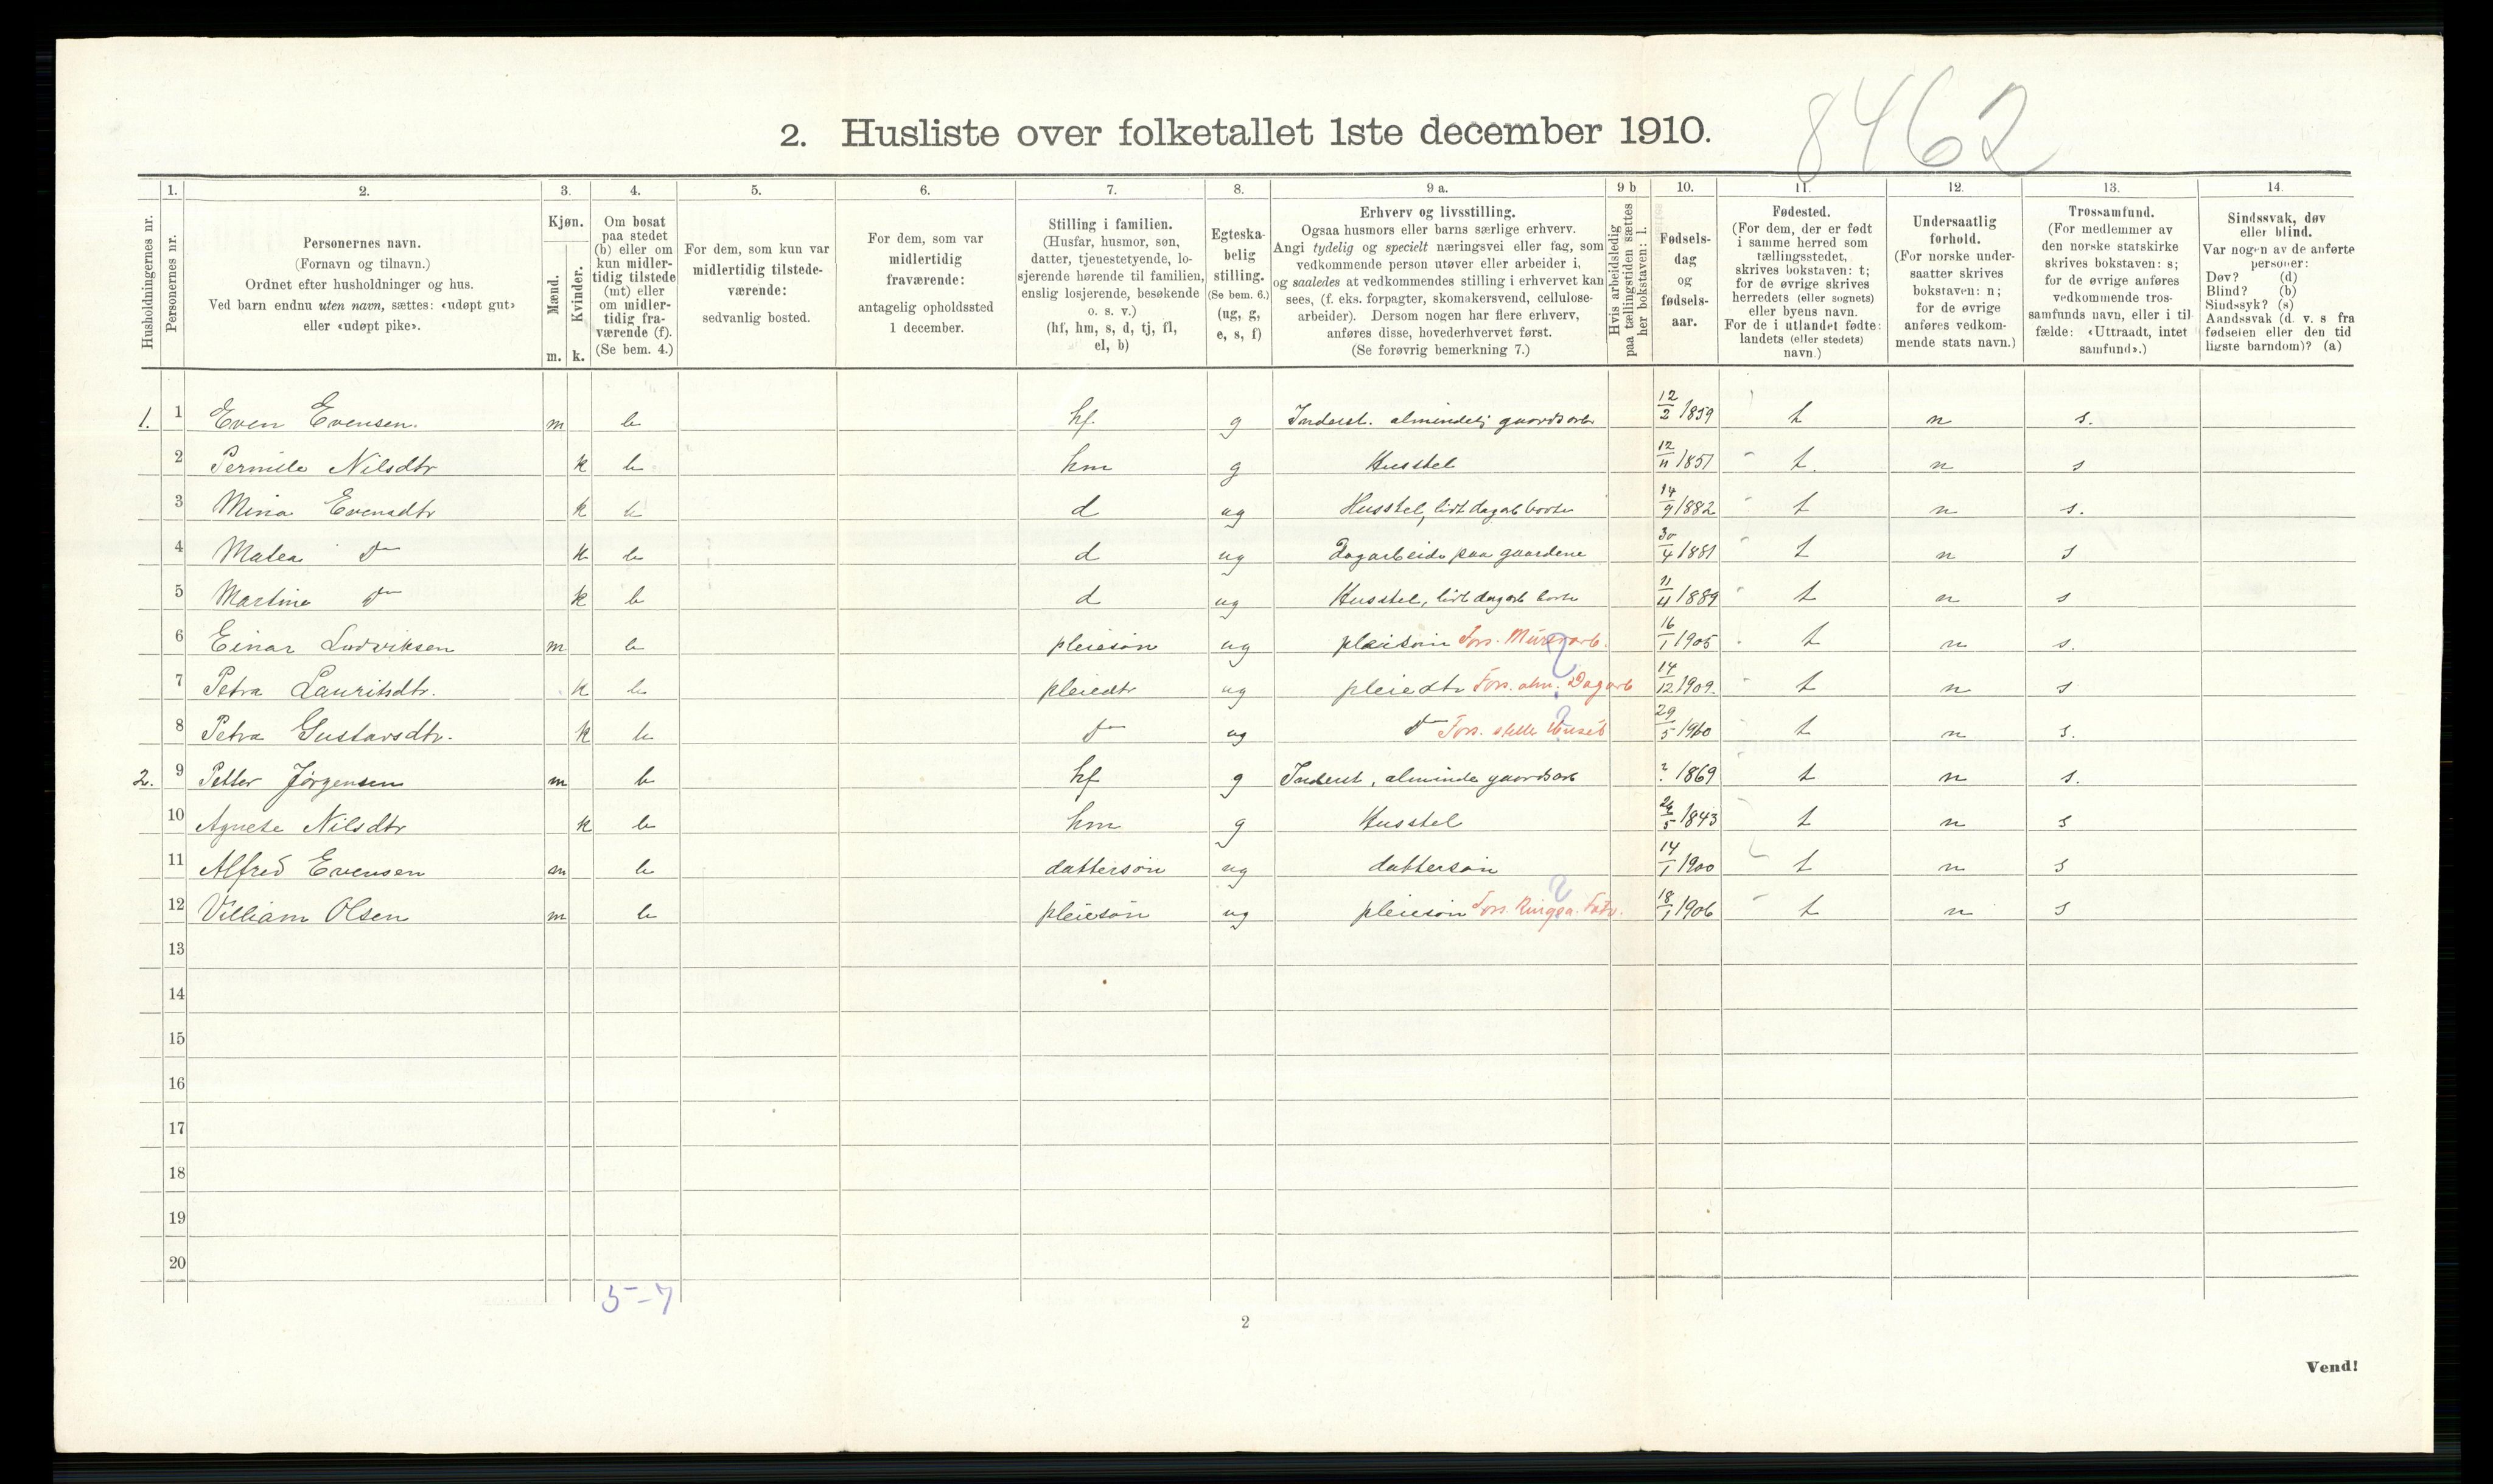 8462
2. Husliste over folketallet 1ste december 1910.
1. 2. 3. 4. 5. 6. 7. 8. 9 a. 9 b 10. 11. 12. 13. 14.
Husholdningernes nr.
Personernes nr.
Personernes navn.
(Fornavn og tilnavn.)
Ordnet efter husholdninger og hus.
Ved barn endnu uten navn, sættes: «udøpt gut»
eller «udøpt pike».
Kjøn.
Mænd.
Kvinder.
m. k.
Om bosat
paa stedet
(b) eller om
kun midler-
tidig tilstede
(mt) eller
om midler-
tidig fra-
værende (f).
(Se bem. 4.)
For dem, som kun var
midlertidig tilstede-
værende:
sedvanlig bosted.
For dem, som var
midlertidig
fraværende:
antagelig opholdssted
1 december.
Stilling i familien.
(Husfar, husmor, søn,
datter, tjenestetyende, lo-
sjerende hørende til familien,
enslig losjerende, besøkende
o. s. v.)
(hf, hm, s, d, tj, fl,
el, b)
Egteska-
belig
stilling.
(Se bem. 6.)
(ug, g,
e, s, f)
Erhverv og livsstilling.
Ogsaa husmors eller barns særlige erhverv.
Angi tydelig og specielt næringsvei eller fag, som
vedkommende person utøver eller arbeider i,
og saaledes at vedkommendes stilling i erhvervet kan
sees, (f. eks. forpagter, skomakersvend, cellulose-
arbeider). Dersom nogen har flere erhverv,
anføres disse, hovederhvervet først.
(Se forøvrig bemerkning 7.)
Hvis arbeidsledig
paa tællingstiden sættes
her bokstaven: l.
Fødsels-
dag
og
fødsels-
aar.
Fødested.
(For dem, der er født
i samme herred som
tællingsstedet,
skrives bokstaven: t;
for de øvrige skrives
herredets (eller sognets)
eller byens navn.
For de i utlandet fødte:
landets (eller stedets)
navn.)
Undersaatlig
forhold.
(For norske under-
saatter skrives
bokstaven: n;
for de øvrige
anføres vedkom-
mende stats navn.)
Trossamfund.
(For medlemmer av
den norske statskirke
skrives bokstaven: s;
for de øvrige anføres
vedkommende tros-
samfunds navn, eller i til-
fælde: «Uttraadt, intet
samfund».)
Sindssvak, døv
eller blind.
Var nogen av de anførte
personer:
Døv? (d)
Blind? (b)
Sindssyk? (s)
Aandssvak (d. v. s. fra
fødselen eller den tid
ligste barndom)? (a)
1. 1 Even Evensen. m b hf. g Inderst. almindelig gaardsarb 12/2 1859 t n s.
2 Pernille Nilsdtr k b hm g Husstel 12/11 1857 t. n s
3 Mina Evensdtr k b d ug Husstel, lidt dagarb borte 14/9 1882 t n s.
4 Malea do k b d ug Dagarbeide paa gaardene 30/4 1881 t n s
5 Martine do k b d ug Husstel, lidt dagarb borte 11/4 1889 t n s
6 Einar Ludviksen m b pleiesøn ug pleiesøn Fors. Murerarb. 16/1 1905 t n s.
7 Petra Lauritsdtr. k b pleiedtr ug pleiedtr Fors. alm. Dagarb 14/12 1909. t n s
8 Petra Gustavsdtr. k b do ug do Fors. stelle Huset 29/5 1900 t n s.
2. 9 Petter Jørgensen m b hf g Inderst, alminde gaardsarb ? 1869 t n s.
10 Agnete Nilsdtr k b hm g Husstel 26/5 1843 t n s
11 Alfred Evensen m b dattersøn ug dattersøn 14/1 1900 t n s
12 Villiam Olsen m b pleiesøn ug pleiesøn Fors. 18/1 1906 t n s
13
14
15
16
17
18
19
20
5-7
2
Vend!